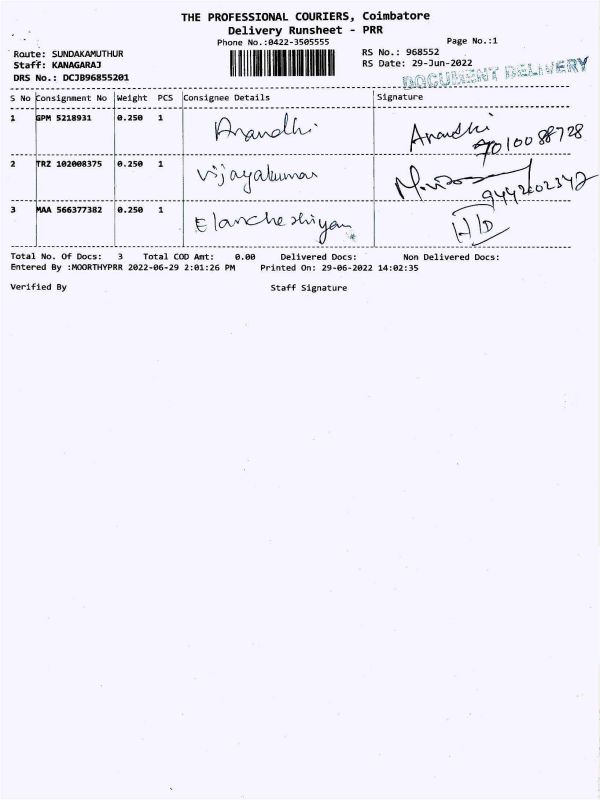 THE PROFESSIONAL COURIERS, Coimbatore
Delivery Runsheet - PRR
Phone No.:0422-3505555
Page No.:1
Route: SUNDAKAMUTHUR
RS No.: 968552
Staff: KANAGARAJ
RS Date: 29-Jun-2022
DRS No.: DCJB96855201
DOCUMENT DELIVERY
S No Consignment No Weight PCS Consignee Details Signature
1 GPM 5218931 0.250 1 Anandhi Anandhi
7010088728
2 TRZ 102008375 0.250 1 Vijayakumar
9442602342
3 MAA 566377382 0.250 1 Elancheshiyan H/D
Total No. Of Docs: 3 Total COD Amt: 0.00 Delivered Docs: Non Delivered Docs:
Entered By :MOORTHYPRR 2022-06-29 2:01:26 PM Printed On: 29-06-2022 14:02:35
Verified By Staff Signature